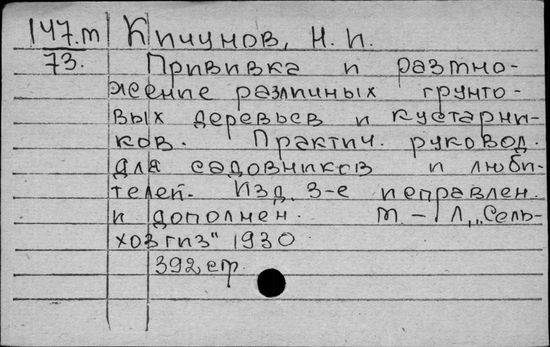 147.m Кичунов, Н. И.
73. Прививка и размно-
жение различных грунто-
вых деревьев и кустарни-
ков. Практич. руковод.
для садовников и люби-
телей. Изд. 3-е исправлен.
и дополнен. М.-Л. „Сель-
хозгиз" 1930
392 стр.